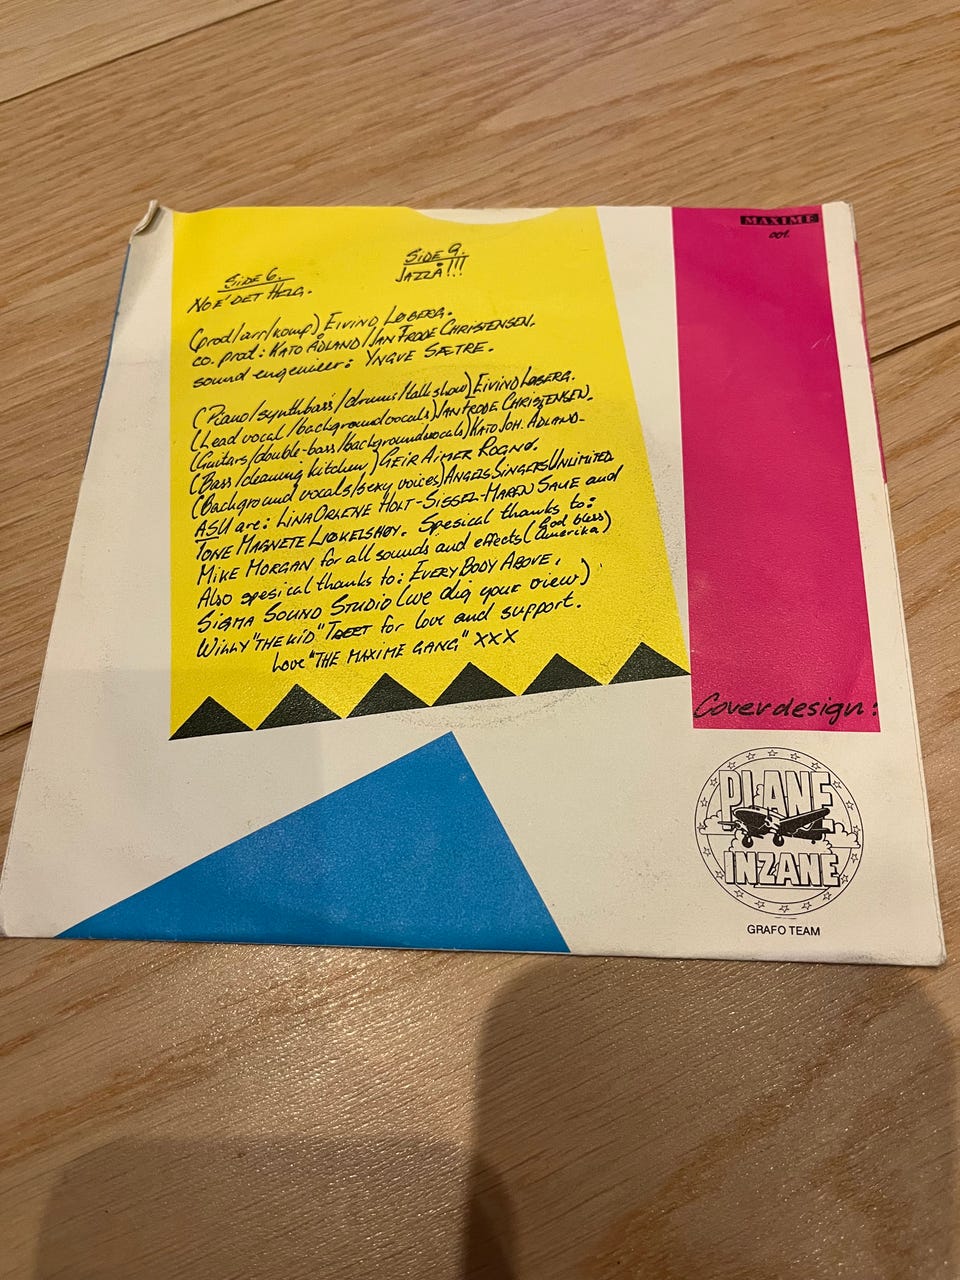 Side 6.
No e' det Helg.
Side 9.
Jazzå!!!
(prod/arr/komp) Eivind Løberg.
co. prod: Kato Ådland/Jan Frode Christensen.
sound engenieer: Yngve Sætre.
(Piano/synthbass/drums/talkshow) Eivind Løberg.
(Lead vocal/backgroundvocals) Jan Frode Christensen.
(Guitars/double-bass/backgroundvocals) Kato Joh. Ådland.
(Bass/cleaning kitchen) Geir Aimer Rogno.
(Background vocals/sexy voices) Angels Singers Unlimited
ASU are: Lina Orlene Holt-Sissel-Maren Sale and
Tone Magnete Liokelshøy. Spesical thanks to:
Mike Morgan for all sounds and effects (God bless Amerika)
Also spesical thanks to: Every Body Above,
Sigma Sound Studio (we dig your view)
Willy "the kid" Treet for love and support.
Love "The Maxime Gang" XXX
MAXIME
001.
Coverdesign:
PLANE
INZANE
GRAFO TEAM